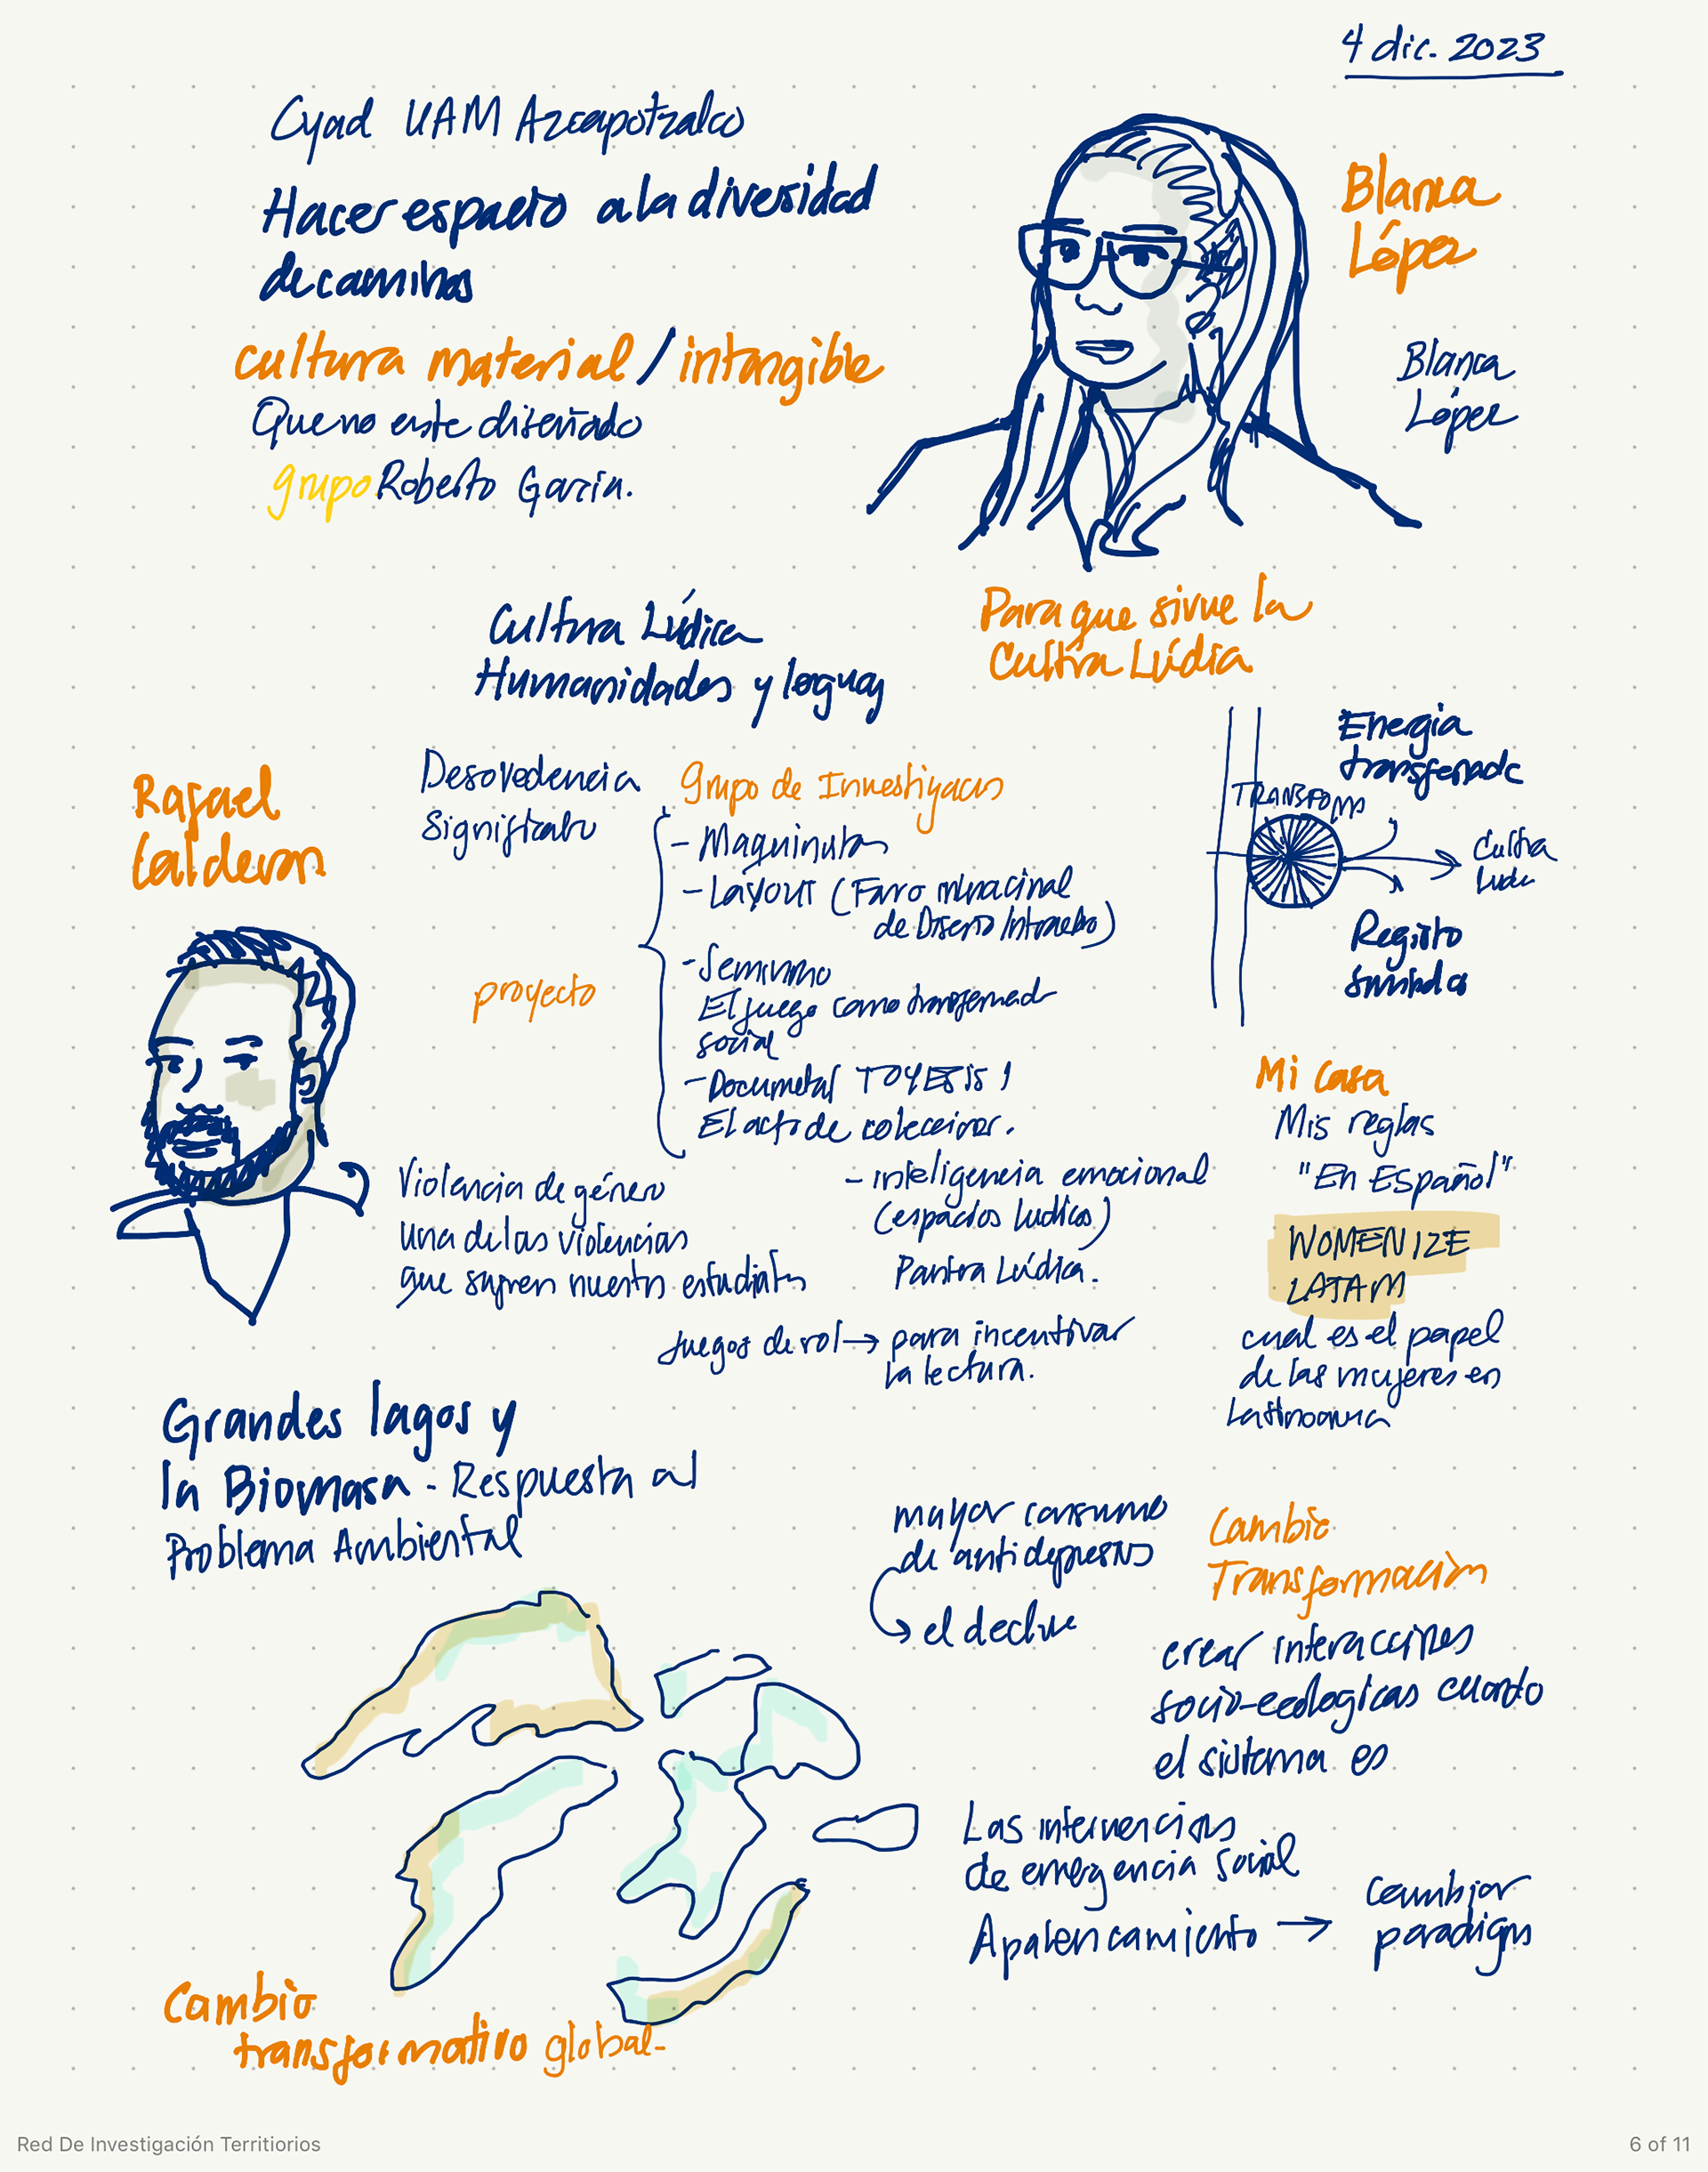 4 dic. 2023
Cyad UAM Azcapotzalco
Hacer espacio a la diversidad
de caminos
cultura material / intangible
Que no este diseñado
grupo Roberto García.
Blanca
López
Blanca
López
Cultura Lúdica
Humanidades y
Para que sirve la
Cultra Lúdia
Rafael
Calderon
Desovedencia
Significado
Grupo de
- Maquinuta
- Layout (Faro
de Diseño
- Seminario
El juego como
social
- Documetal TOYESIS 1
El acto de coleccionar.
proyecto
Energia
transferada
TRANSFOMA
Cultra
Registo
Mi casa
Mis reglas
"En Español"
WOMENIZE
LATAM
cual es el papel
de las mujeres en
Violencia de género
una de las violencias
que sufren nuestros estudiates
- inteligencia emocional
(espacios ludicos)
Lúdica.
Juegos de rol → para incentivar
la lectura.
Grandes lagos y
la Biomasa - Respuesta al
Problema Ambiental
mayor consumo
de
→ el declive
Cambio
Transformación
crear interacciones
socio-ecologicas cuando
el sistema es
Las intervencions
de emergencia social
Apalencamiento → cambiar
paradigms
Cambio
transformativo global-
Red De Investigación Territiorios
6 of 11